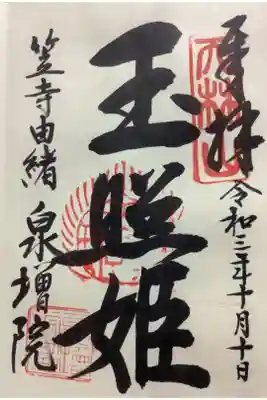 奉拝 令和三年十月十日
天林山
玉照姫
笠寺由緒 泉増院